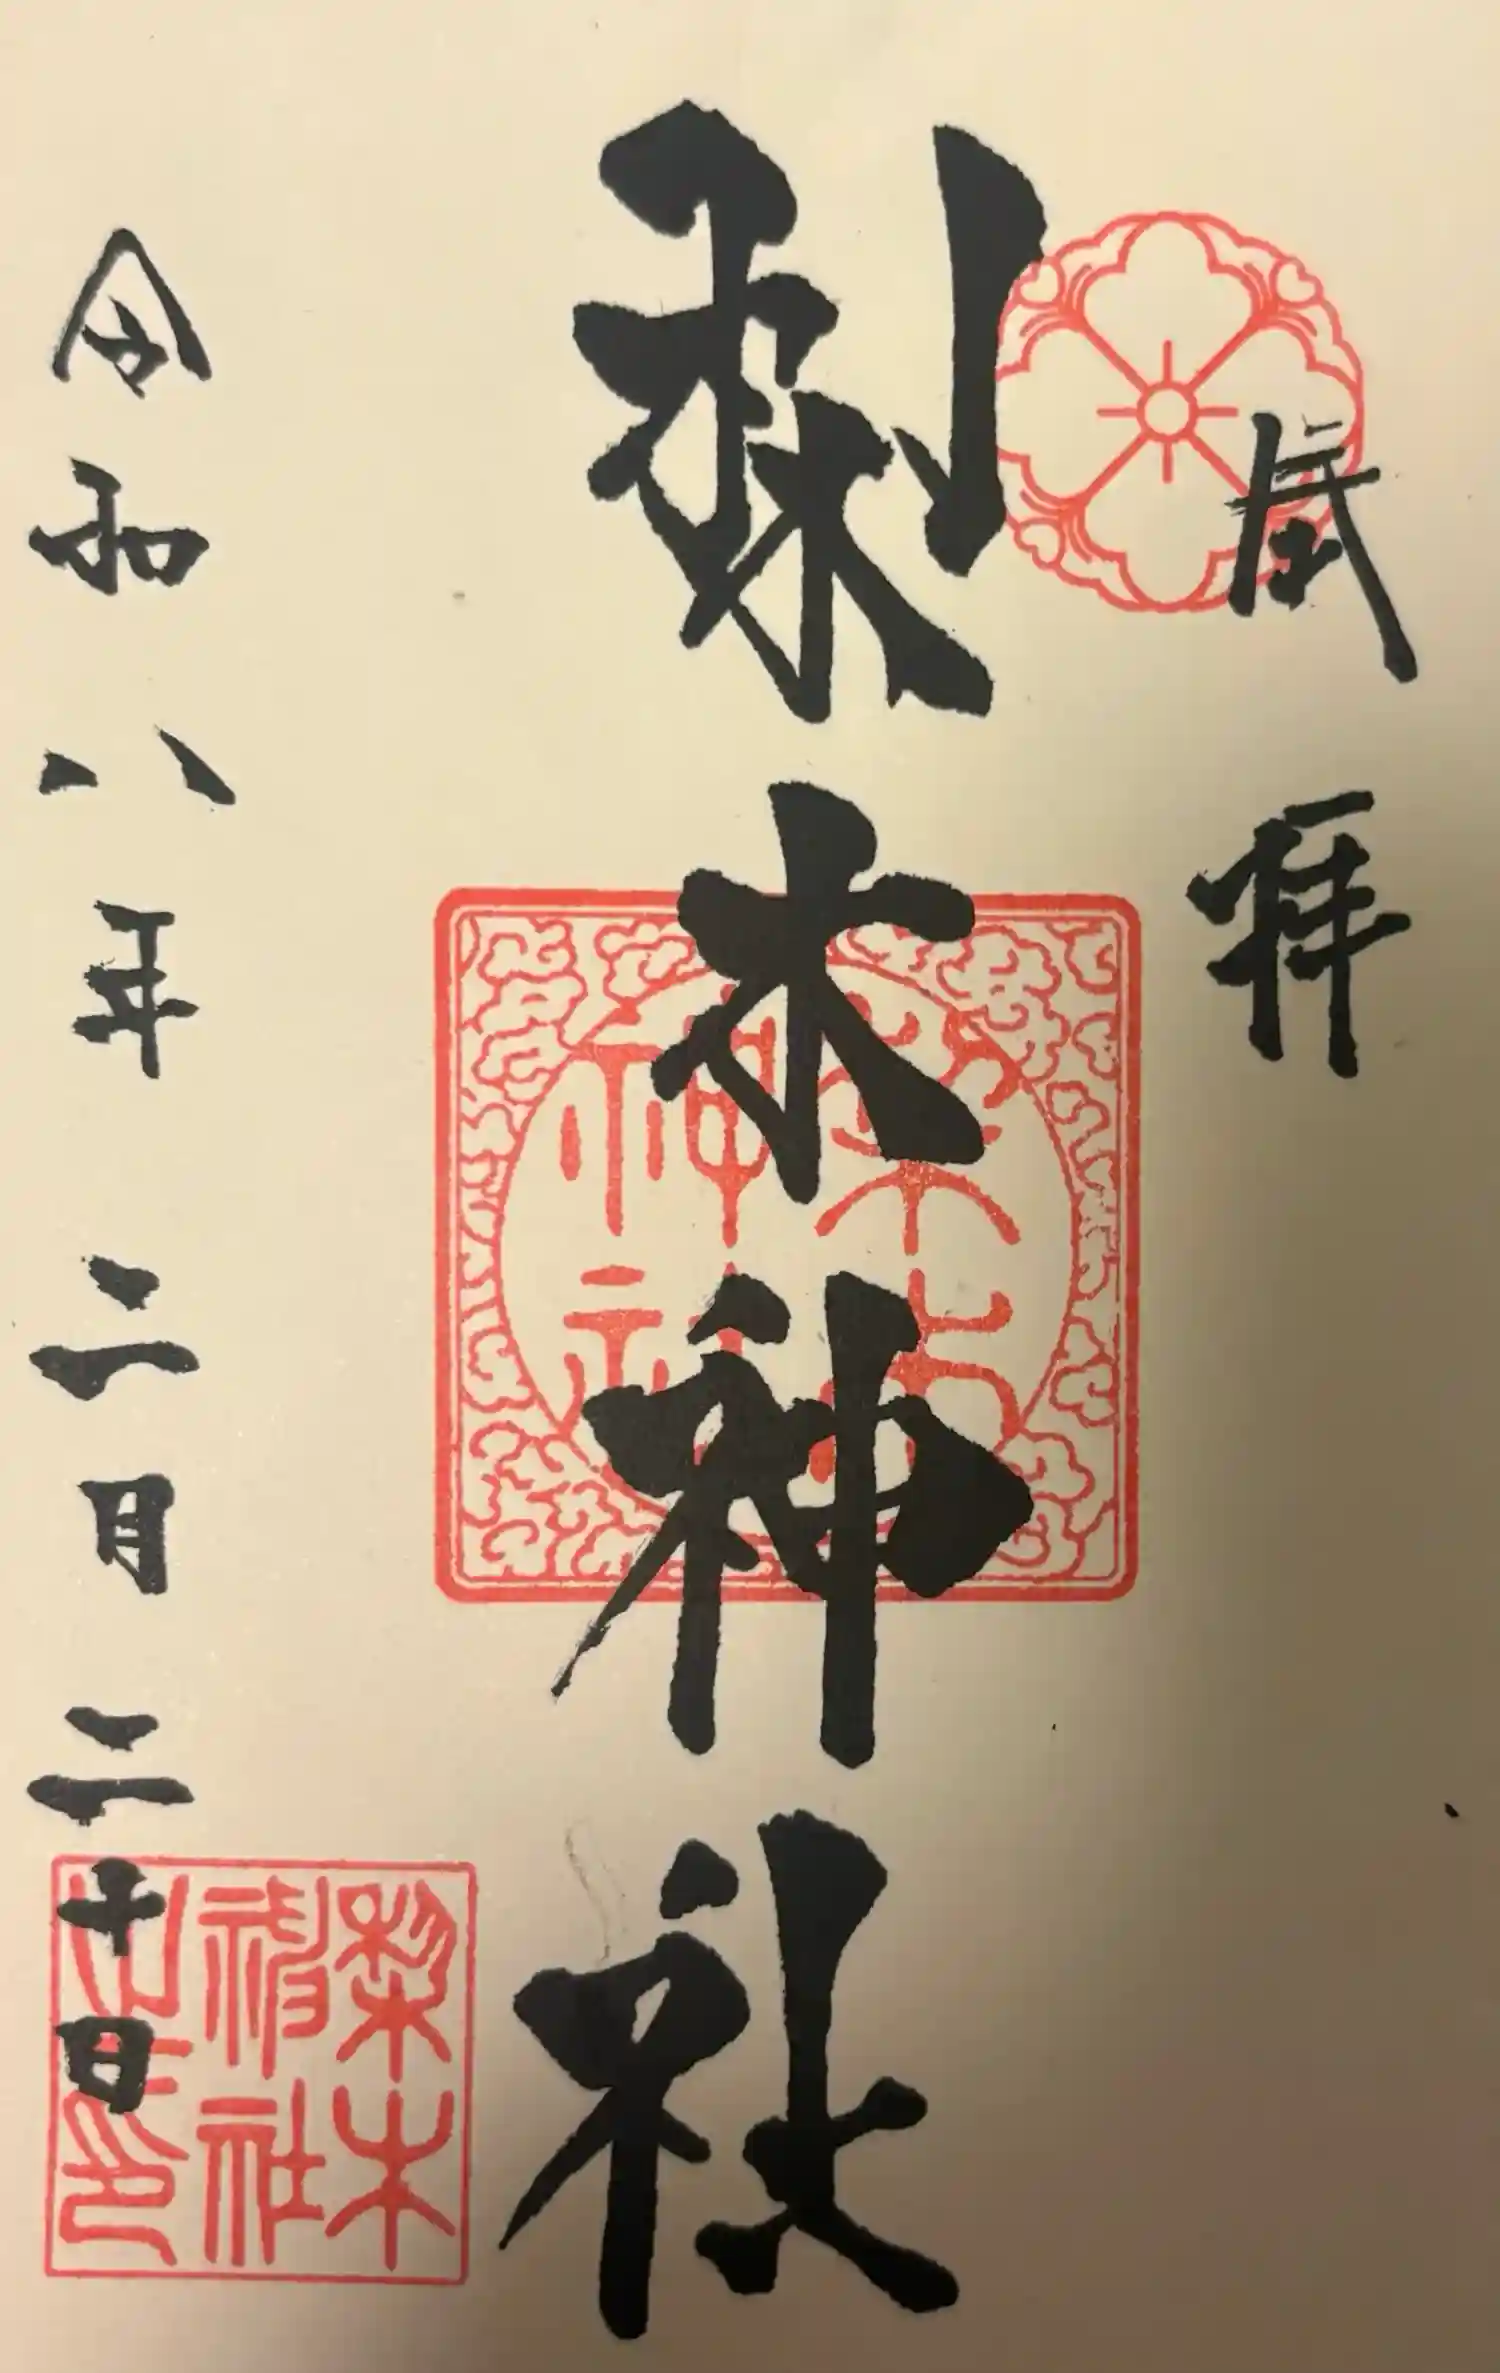 拝
梨木神社
梨木神社
令和八年二月二十日
梨木
神社
之印